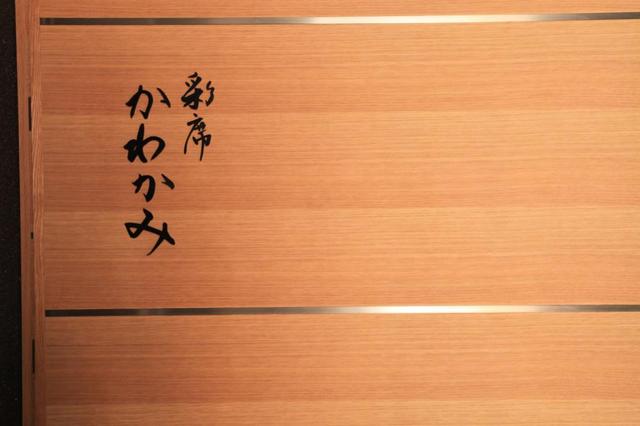 彩席
かわかみ